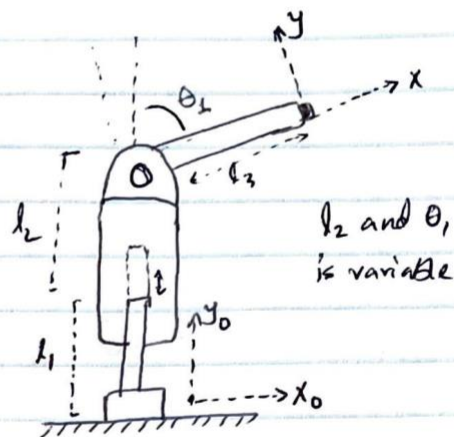 y
x
θ₁
l₃
l₂
l₂ and θ₁
is variable
l₁
y₀
x₀